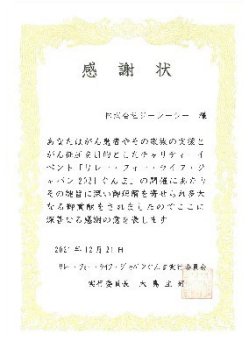 感謝状
株式会社ジーシーシー 様
あなたはがん患者やその家族の支援と
がん征圧を目的としたチャリティーイ
ベント「リレー・フォー・ライフ・ジ
ャパン2021ぐんま」の開催にあたり
その趣旨に深い御理解を寄せられ多大
なる御貢献をされましたのでここに
深甚なる感謝の意を表します
2021年12月21日
リレー・フォー・ライフ・ジャパンぐんま実行委員会
実行委員長 大